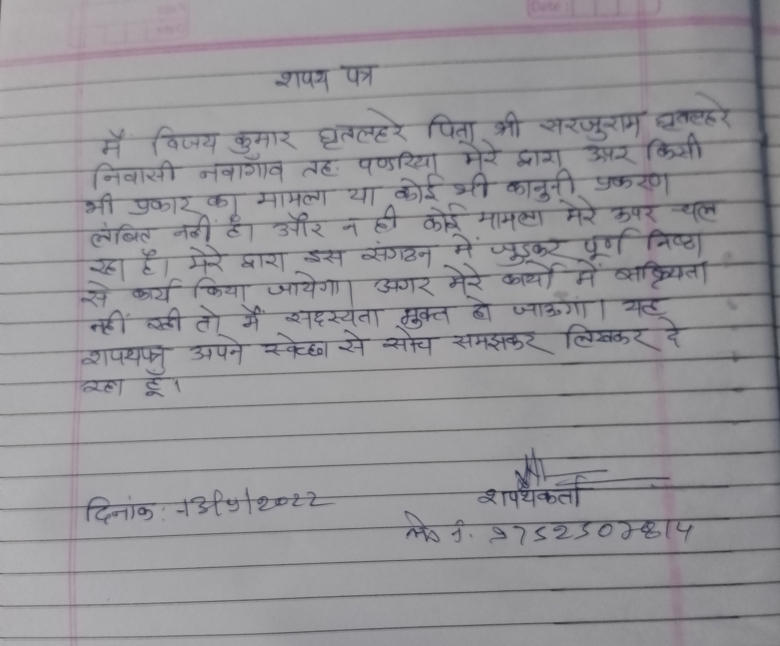 शपथ पत्र
मैं विजय कुमार घृतलहरे पिता श्री सरजुराम घृतलहरे
निवासी नवागांव तह. पण्डरिया मेरे द्वारा अर किसी
भी प्रकार का मामला या कोई भी कानुनी प्रकरण
लंबित नहीं है। और न ही कोई मामला मेरे उपर चल
रहा है। मेरे द्वारा इस संगठन में जुड़कर पूर्ण निष्ठा
से कार्य किया जायेगा। अगर मेरे कार्यो में सक्रियता
नहीं रही तो मैं सदस्यता मुक्त हो जाऊंगा। यह
शपथपत्र अपने स्वेच्छा से सोच समझकर लिखकर दे
रहा हूँ।
शपथकर्ता
दिनांक: 13/9/2022
मो न. 9752507814